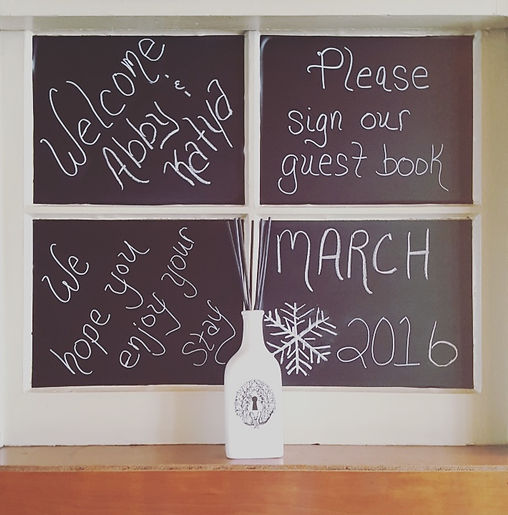 Welcome
Abby &
Katya
Please
sign our
guest book
We
hope you
enjoy your
Stay
MARCH
2016